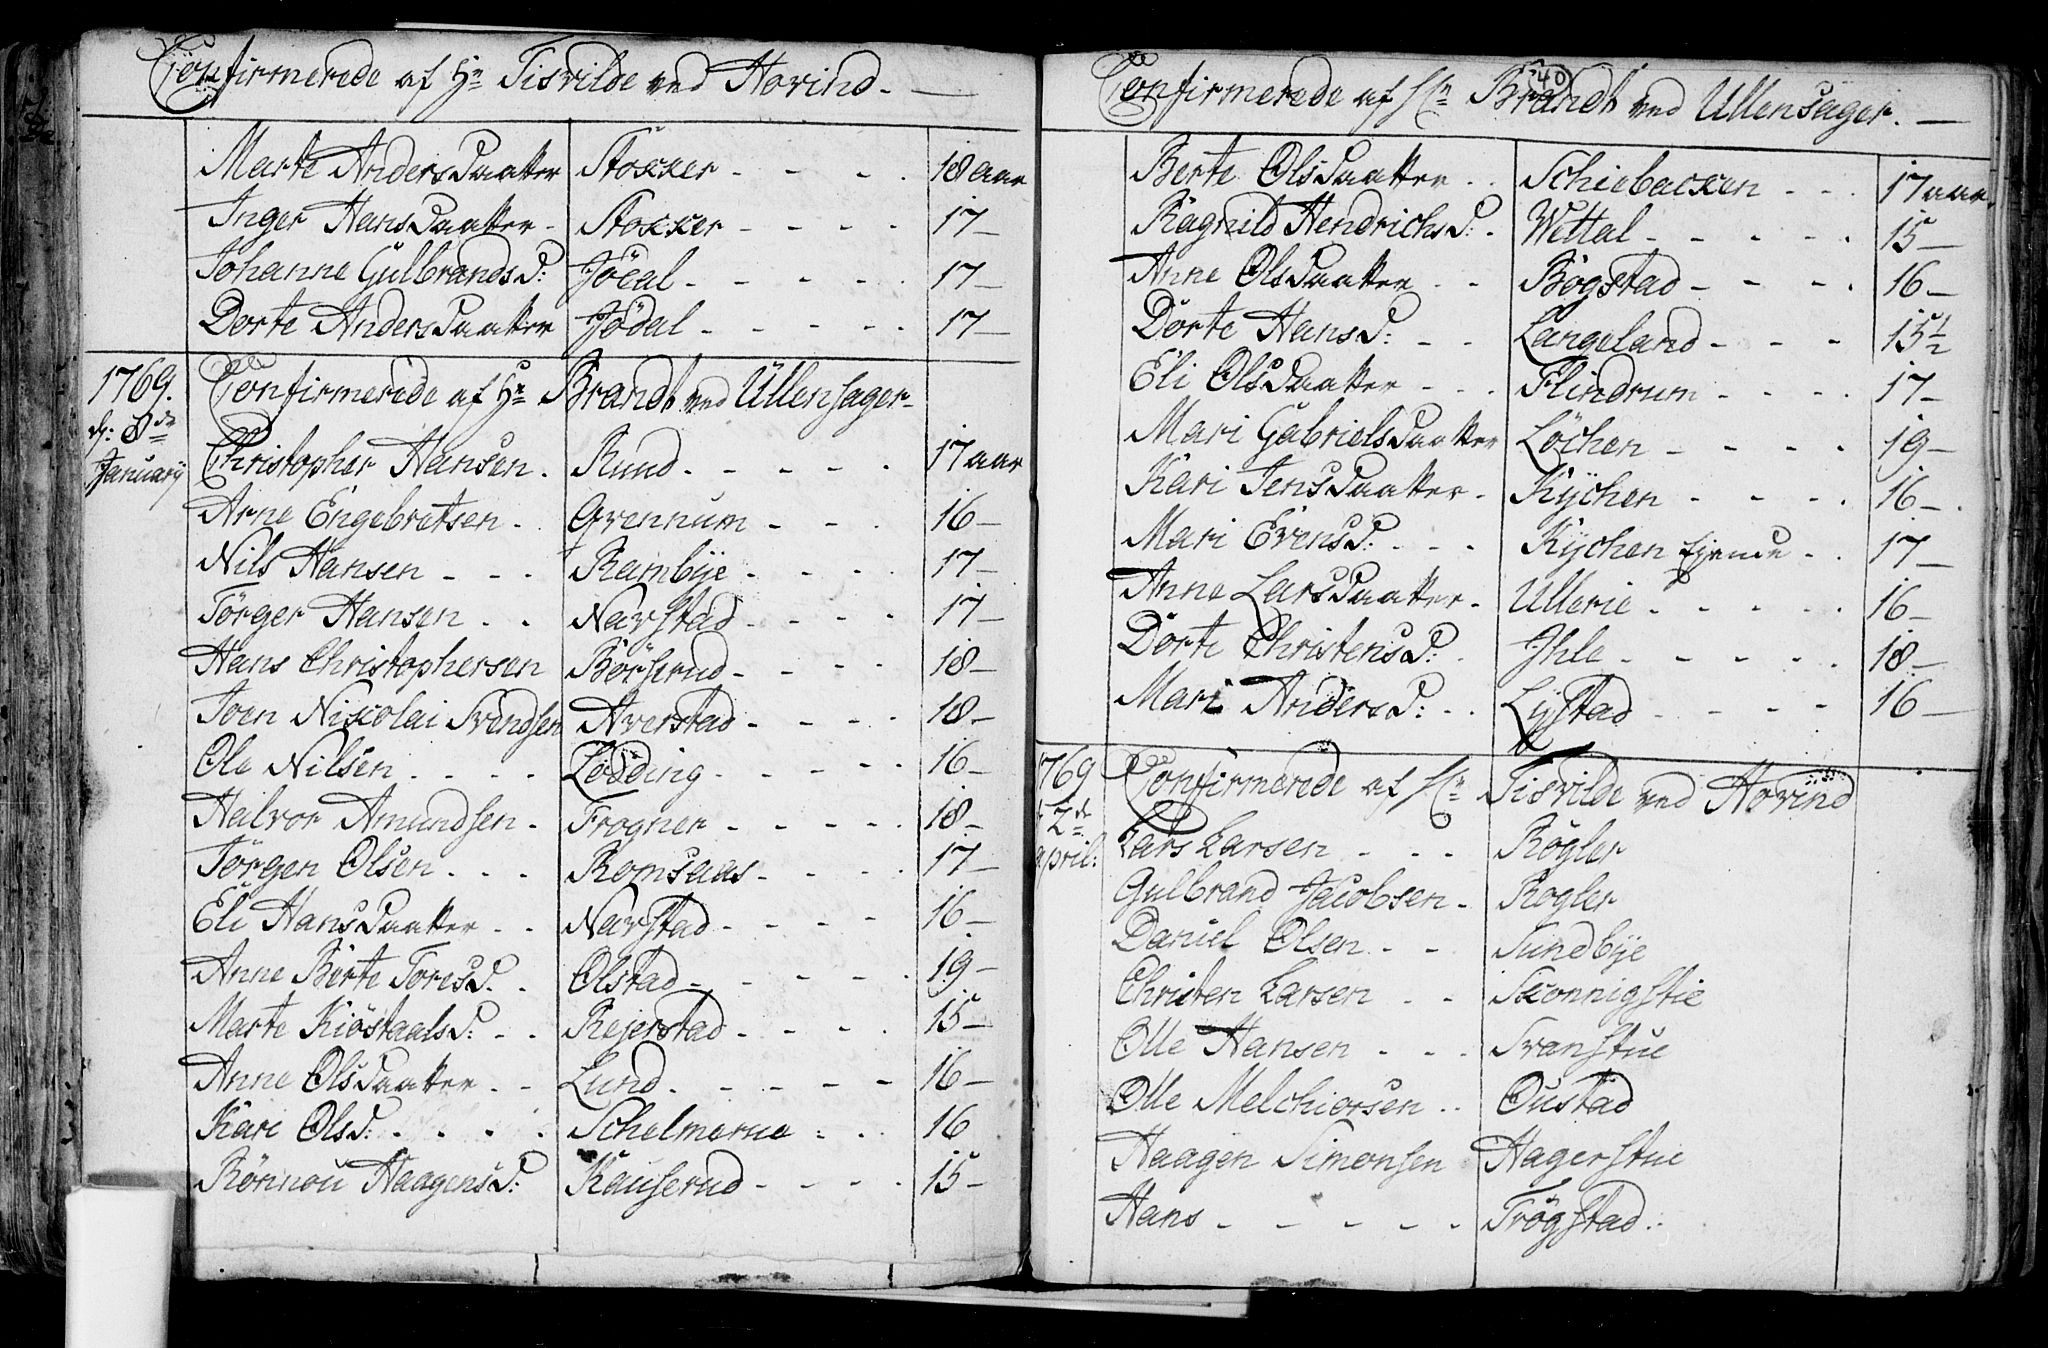 Confirmerede af Hr Tisvilde ved Hovind. —
Marte Anders Daatter Stokker - - - - 18 aar
Inger Hans Daatter - Stokker - - - - 17 —
Johanne Gulbrands D: Jödal - - - - - 17 —
Dorte Anders Daatter Jödal - - - - - 17 —
1769. Confirmerede af Hr Brandt ved Ullensager -
d: 8de
January
Christopher Hansen. Rund - - - - - 17 aar
Arne Engebretsen - Grennum - - - 16 —
Nils Hansen - - - Rambye - - - - 17 —
Törger Hansen - - Narstad - - - - 17 —
Hans Christophersen Börserud - - - - 18 —
Joen Nikolai Svendsen Averstad - - - - 18 —
Ole Nilsen - - - - Lödding - - - - - 16 —
Halvor Amundsen - Frogner - - - - - 18 —
Jörgen Olsen - - - Romsaas - - - - 17 —
Eli Hans Daatter - - Narstad - - - - 16 —
Anne Berte Tores D. - Olstad - - - - - 19 —
Marte Kiöstaals D: - - Rejerstad - - - - 15 —
Anne Ols Daatter - - Lund - - - - - 16 —
Kari Ols D: - - - - Schelmerue - - - 16
Rönnou Haagens D: Kauserud - - - - 15 —
40
Confirmerede af Hr Brandt ved Ullensager. —
Berte Ols Daatter - - Schiebacken - - - 17 aar.
Ragnild Hendrichs D: - Wettal - - - - - 15 —
Anne Ols Daatter - - Bögstad - - - - 16 —
Dorte Hans D: - - Langeland - - - 15 1/2
Eli Ols Daatter - - - Flindrum - - - - 17 —
Mari Gabriels Daatter Löchen - - - - 19 —
Kari Jens Daatter - Kÿchen - - - - 16 —
Mari Evens D: - - - Kÿchen Ejende - - 17 —
Anne Lars Daatter - Ullerie - - - - - 16 —
Dorte Christens D: - Ihle - - - - - 18 —
Mari Anders D: - - Lystad - - - - - 16 —
1769 Confirmerede af Hr Tisvilde ved Hovind
d 2de
april:
Lars Larsen - - - Rögler
Gulbrand Jacobsen - Rögler
Daniel Olsen - - Sundbye
Christen Larsen - - Skonnigstie
Olle Hansen - - - Svanstue
Olle Melchiorsen - - Oustad
Haagen Simonsen Hagerstue
Hans - - - - - Trögstad -